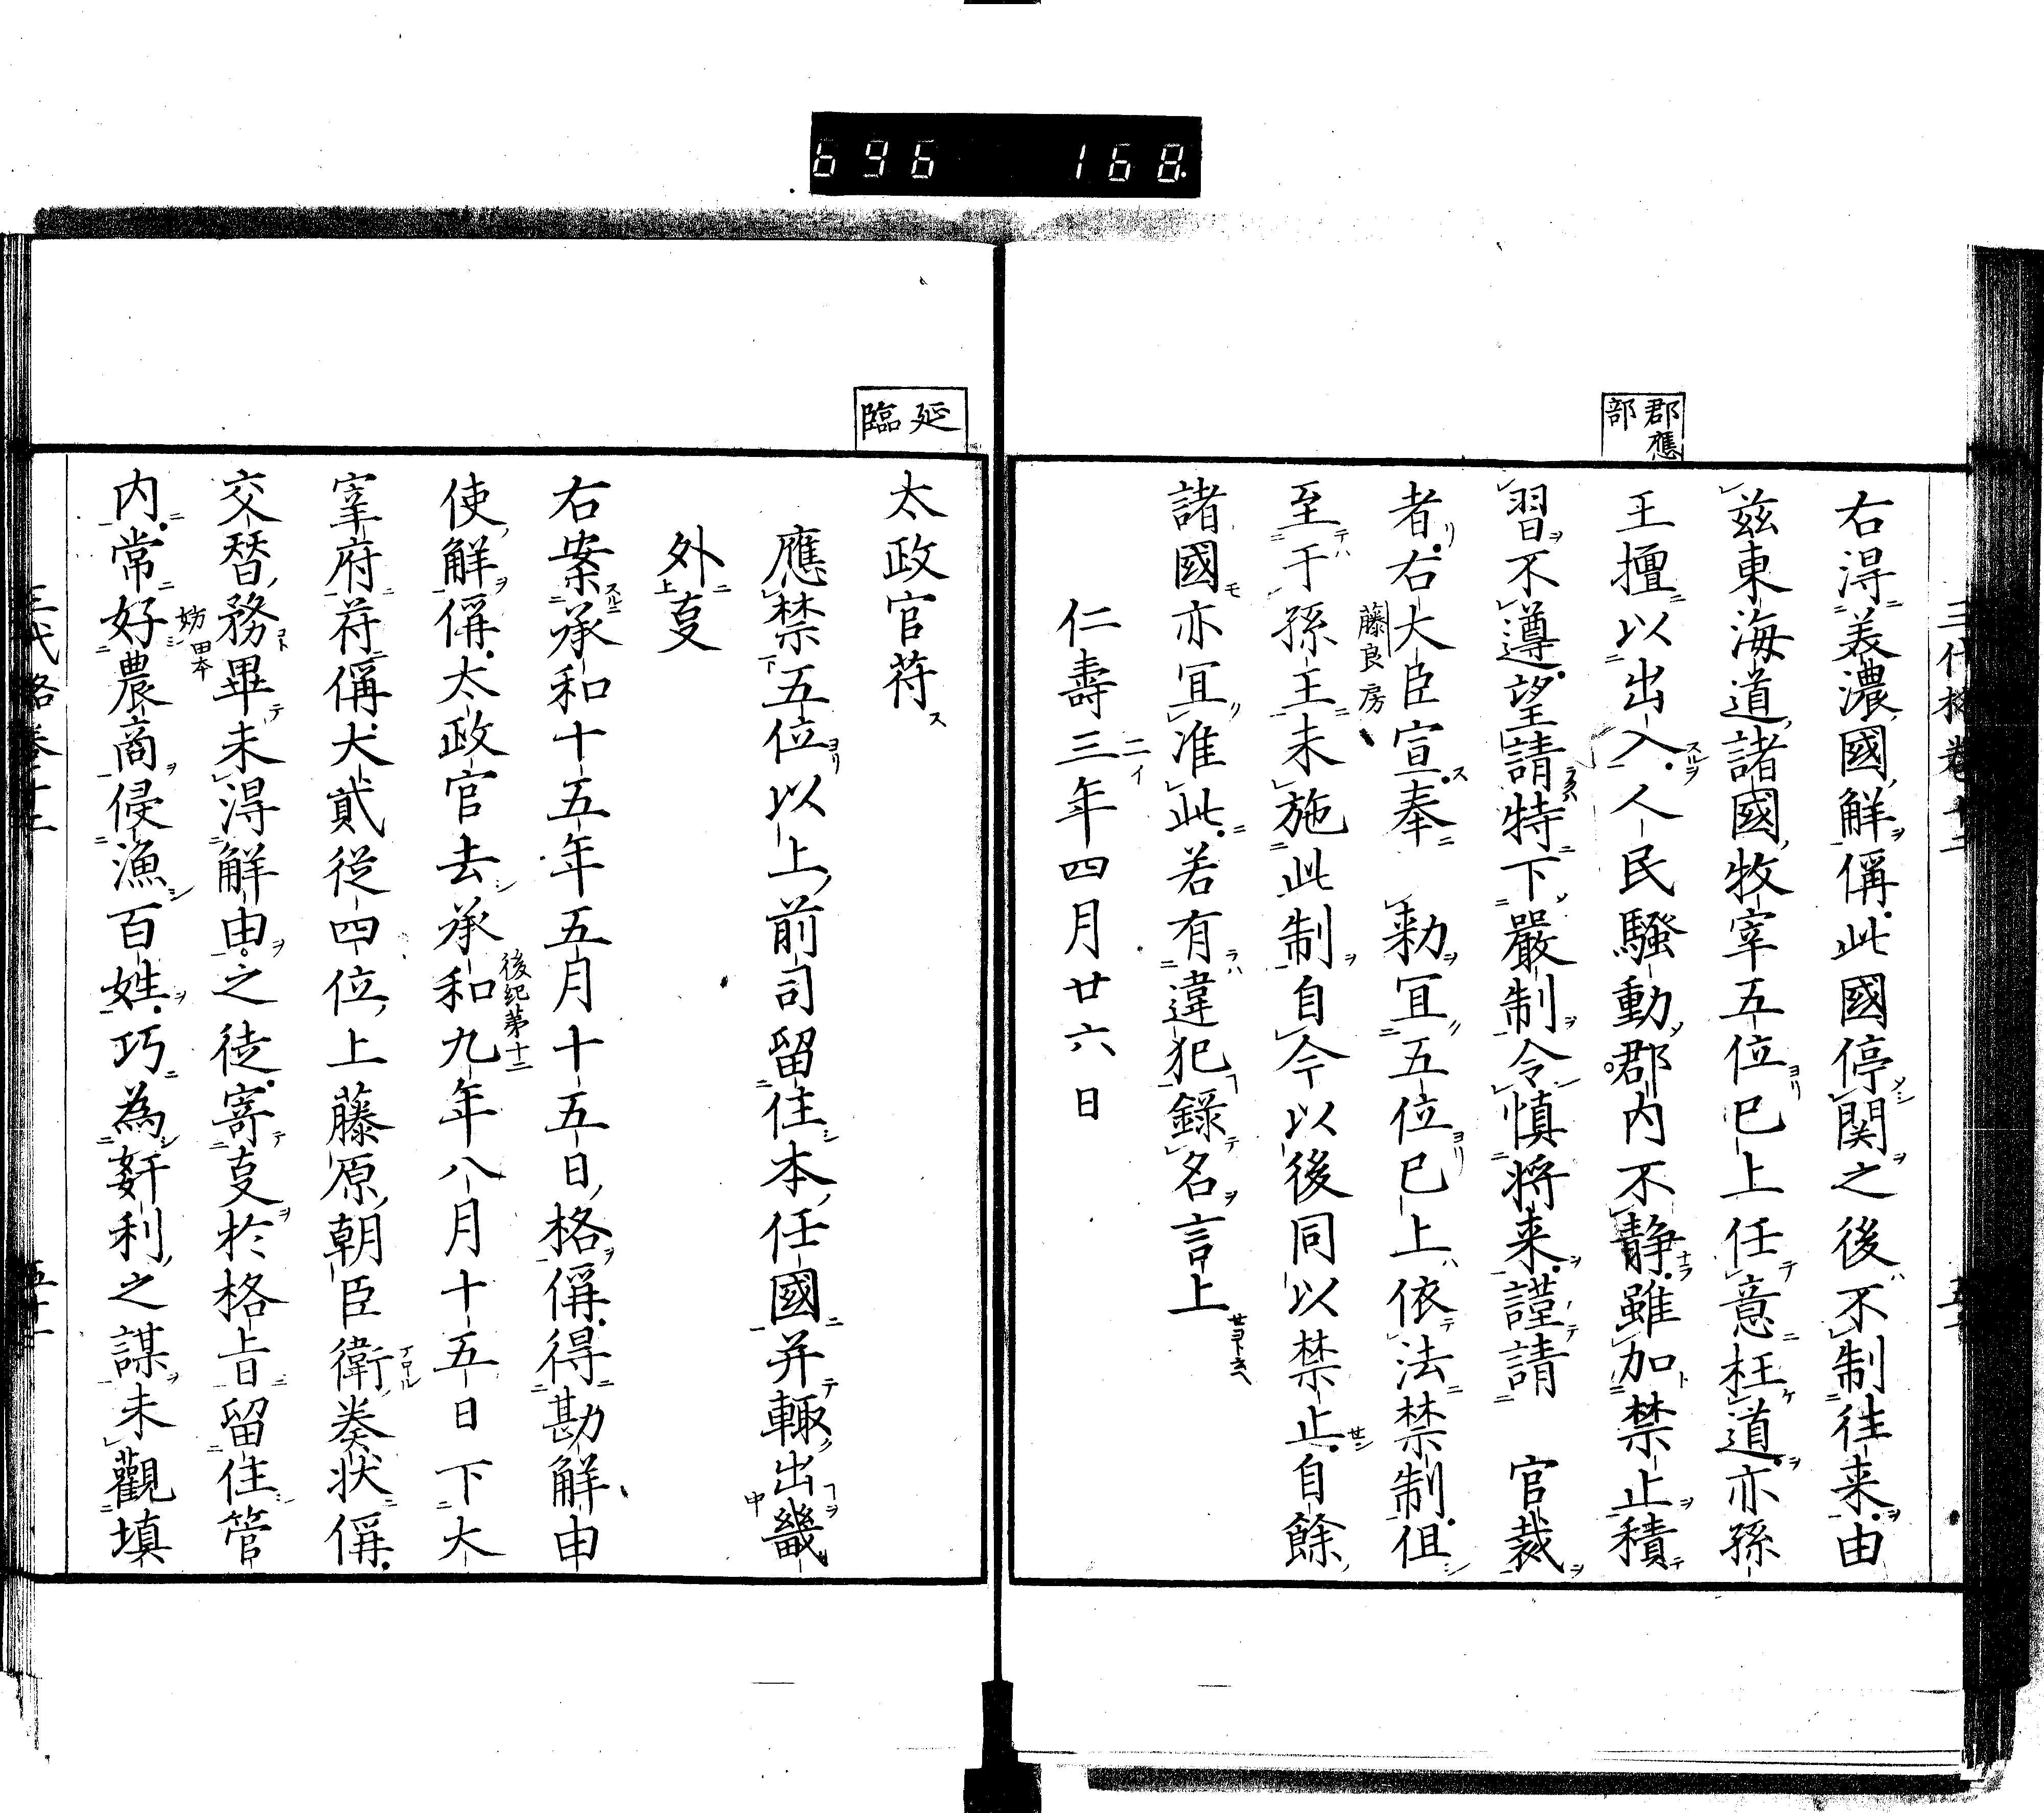 696 168
郡應
部
右得美濃國解偁此國停関之後不制往来由
兹東海道諸國牧宰五位已上任意枉道亦孫
王擅以出入人民騷動郡内不静雖加禁止積
習不遵望請特下嚴制令慎将来謹請 官裁
者右大臣宣奉 勅冝五位已上依法禁制但
藤良房
至于孫王未施此制自今以後同以禁止自餘
諸國亦冝准此若有違犯錄名言上
仁壽三年四月廿六日
二イ
延
臨
太政官符
應禁五位以上前司留住本任國并輙出畿
外叓
右案承和十五年五月十五日格偁得勘解由
使解偁太政官去承和九年八月十五日下大
後紀第十二
宰府符偁大貳從四位上藤原朝臣衛奏状偁
交替務畢未得解由之徒寄叓於格旨留住管
内常好農商侵漁百姓巧為姧利之謀未觀填
妨田本